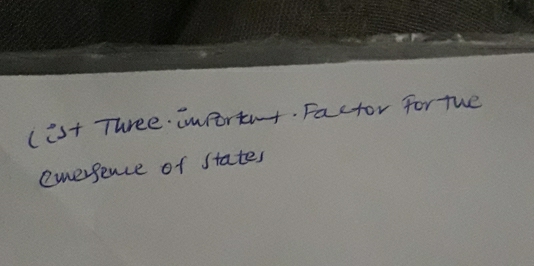 List Three important Factor For the
emergence of states